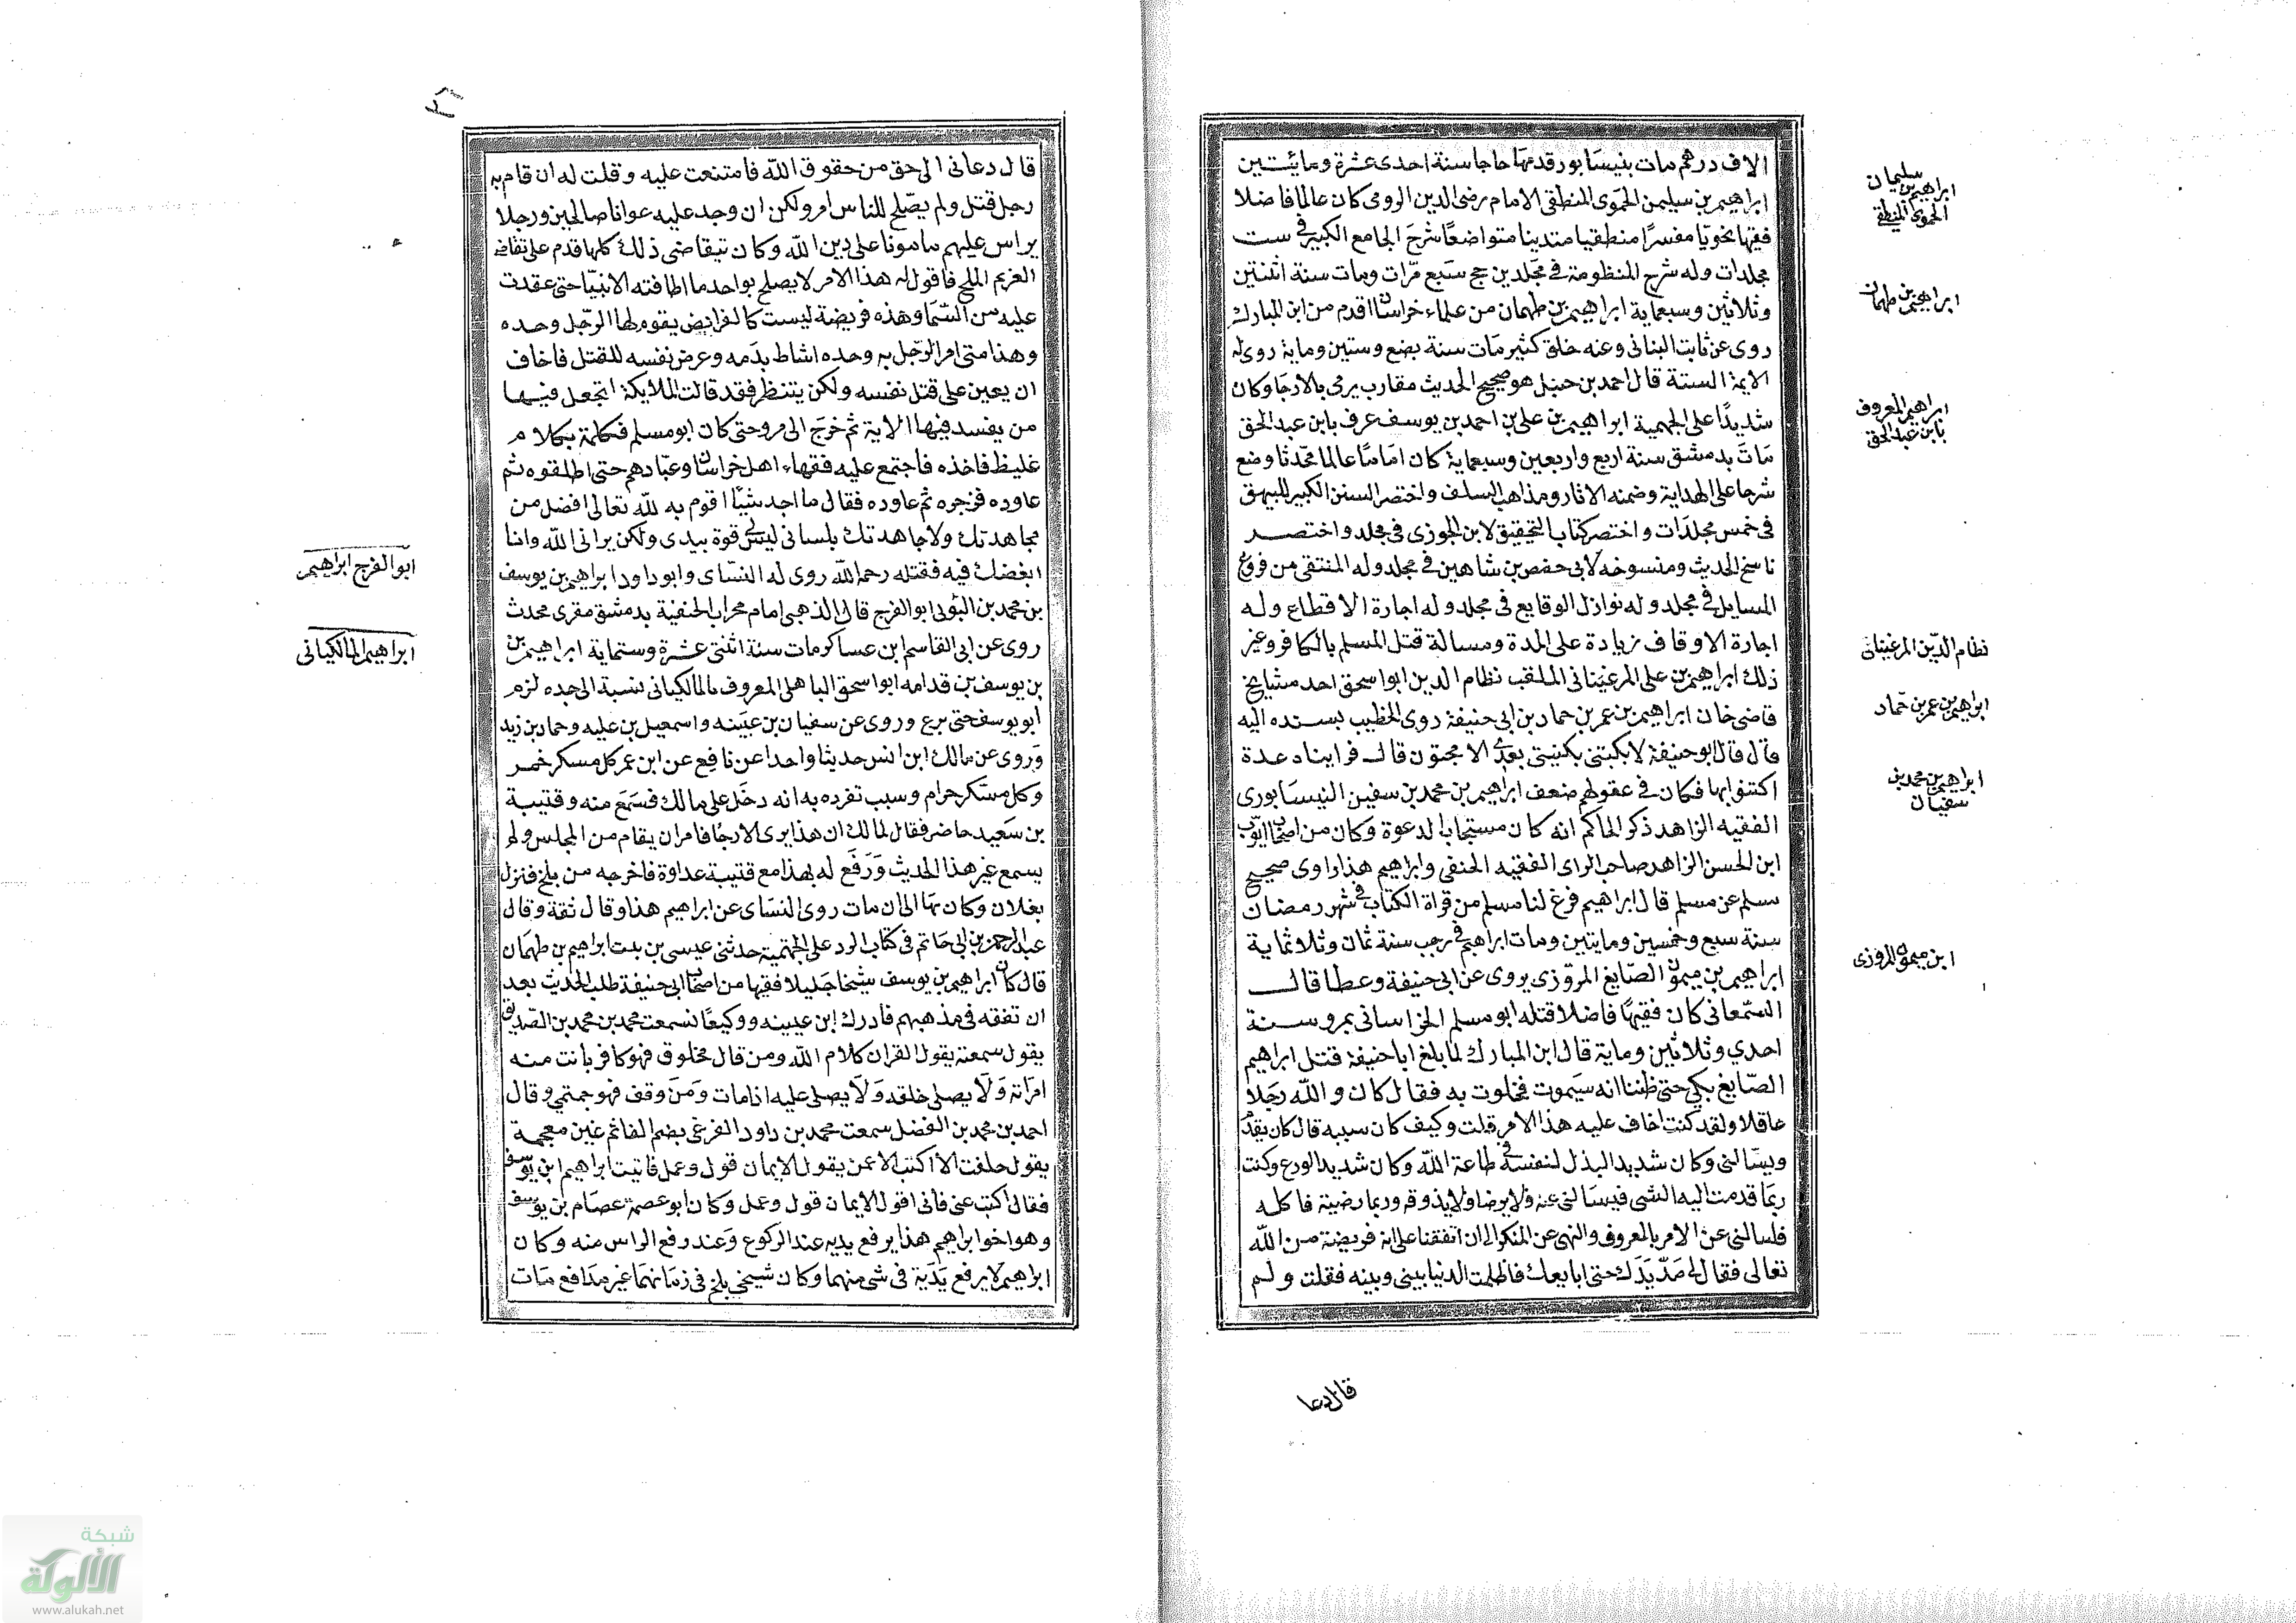 الاف درهم مات بنيسابور قدمها حاجا سنة احدى عشرة ومائتين
ابراهيم بن سليمن الحموى المنطقى الامام رضى الدين الرومى كان عالما فاضلا
فقيها نحويا مفسرا منطقيا متدينا متواضعا شرح الجامع الكبير فى ست
مجلدات وله شرح المنظومة فى مجلدين حج سبع مرات ومات سنة اثنتين
وثلاثين وسبعماية ابراهيم بن طهمان من علماء خراسان اقدم من ابن المبارك
روى عن ثابت البنانى وعنه خلق كثير مات سنة بضع وستين وماية روى له
الايمة الستة قال احمد بن حنبل هو صحيح الحديث مقارب يرمى بالارجا وكان
شديدا على الجهمية ابراهيم بن على بن احمد بن يوسف عرف بابن عبد الحق
مات بدمشق سنة اربع واربعين وسبعماية كان اماما عالما محدثا وضع
شرحا على الهداية وضمنه الاثار ومذاهب السلف واختصر السنن الكبير للبيهقى
فى خمس مجلدات واختصر كتاب التحقيق لابن الجوزى فى مجلد واختصر
ناسخ الحديث ومنسوخه لابى حفص بن شاهين فى مجلد وله المنتقى من فروع
المسايل فى مجلد وله نوازل الوقايع فى مجلد وله اجارة الاقطاع وله
اجارة الاوقاف زيادة على المدة ومسالة قتل المسلم بالكافر وغير
ذلك ابراهيم بن على المرغينانى الملقب نظام الدين ابو اسحق احد مشايخ
قاضى خان ابراهيم بن عمر بن حماد بن ابى حنيفة روى الخطيب بسنده اليه
قال قال ابو حنيفة لا يكتنى بكنيتى بعدى الا مجنون قال فراينا عدة
اكتنوا بها فكان فى عقولهم ضعف ابراهيم بن محمد بن سفين النيسابورى
الفقيه الزاهد ذكر الحاكم انه كان مستجاب الدعوة وكان من اصحاب ايوب
ابن الحسن الزاهد صاحب الراى الفقيه الحنفى وابراهيم هذا راوى صحيح
مسلم عن مسلم قال ابراهيم فرغ لنا مسلم من قراة الكتاب فى شهر رمضان
سنة سبع وخمسين ومايتين ومات ابراهيم فى رجب سنة ثمان وثلاثماية
ابراهيم بن ميمون الصايغ المروزى يروى عن ابى حنيفة وعطا قال
السمعانى كان فقيها فاضلا قتله ابو مسلم الخراسانى بمرو سنة
احدى وثلاثين وماية قال ابن المبارك لما بلغ ابا حنيفة قتل ابراهيم
الصايغ بكى حتى ظننا انه سيموت فخلوت به فقال كان والله رجلا
عاقلا ولقد كنت اخاف عليه هذا الامر قلت وكيف كان سببه قال كان يقدم
ويسالنى وكان شديد البذل لنفسه فى طاعة الله وكان شديد الورع وكنت
ربما قدمت اليه الشى فيسالنى عنه ولا يرضا ولا يذوقه وربما رضيه فاكله
فسالنى عن الامر بالمعروف والنهى عن المنكر الى ان اتفقنا على انه فريضة من الله
تعالى فقال لى مد يدك حتى ابايعك فاظلمت الدنيا بينى وبينه فقلت ولم
قال دعا
ابراهيم بن سليمان
الحموى المنطقى
ابراهيم بن طهمان
ابراهيم المعروف
بابن عبد الحق
نظام الدين المرغينانى
ابراهيم بن عمر بن حماد
ابراهيم بن محمد بن
سفيان
ابن ميمون المروزى
٢٦
قال دعانى الى حق من حقوق الله فامتنعت عليه وقلت له ان قام به
رجل قتل ولم يصلح للناس امر ولكن ان وجد عليه عوانا صالحين ورجلا
يراس عليهم مامونا على دين الله وكان يتقاضى ذلك كلما قدم على تقاضى
الغريم الملح فاقول له هذا الامر لا يصلح بواحد ما اطاقته الانبيا حتى عقدت
عليه من السما وهذه فريضة ليست كالفرايض يقوم لها الرجل وحده
وهذا متى امر الرجل به وحده اشاط بدمه وعرض نفسه للقتل فاخاف
ان يعين على قتل نفسه ولكن ينتظر فقد قالت الملايكة اتجعل فيها
من يفسد فيها الاية ثم خرج الى مرو حتى كان ابو مسلم فكلمه بكلام
غليظ فاخذه فاجتمع عليه فقهاء اهل خراسان وعبادهم حتى اطلقوه ثم
عاوده فزجره ثم عاوده فقال ما اجد شيئا اقوم به لله تعالى افضل من
مجاهدتك ولاجاهدتك بلسانى ليس لى قوة بيدى ولكن يرانى الله وانا
ابغضك فيه فقتله رحمه الله روى له النساى وابو داود ابراهيم بن يوسف
بن محمد بن البونى ابو الفرج قال الذهبى امام محراب الحنفية بدمشق مقرى محدث
روى عن ابى القاسم ابن عساكر مات سنة اثنتى عشرة وستماية ابراهيم بن
بن يوسف بن قدامه ابو اسحق الباهلى المعروف بالماكيانى نسبة الى جده لزم
ابو يوسف حتى برع وروى عن سفيان بن عيينه واسمعيل بن عليه وحماد بن زيد
وروى عن مالك ابن انس حديثا واحدا عن نافع عن ابن عمر كل مسكر خمر
وكل مسكر حرام وسبب تفرده به انه دخل على مالك فسمع منه وقتيبة
بن سعيد حاضر فقال لمالك ان هذا يرى الارجا فامر ان يقام من المجلس ولم
يسمع غير هذا الحديث ووقع له بهذا مع قتيبة عداوة فاخرجه من بلخ فنزل
بغلان وكان بها الى ان مات روى النساى عن ابراهيم هذا وقال ثقة وقال
عبد الرحمن بن ابى حاتم فى كتاب الرد على الجهمية حدثنى عيسى بن بنت ابراهيم بن طهمان
قال كان ابراهيم بن يوسف شيخا جليلا فقيها من اصحاب ابى حنيفة طلب الحديث بعد
ان تفقه فى مذهبهم فادرك ابن عيينه ووكيعا فسمعت محمد بن محمد بن الصديق
يقول سمعته يقول القران كلام الله ومن قال مخلوق فهو كافر بانت منه
امراته ولا يصلى خلفه ولا يصلى عليه اذا مات ومن وقف فهو جهمى وقال
احمد بن محمد بن الفضل سمعت محمد بن داود الفرغى بضم الفا ثم غين معجمة
يقول حلفت الا اكتب الا عمن يقول الايمان قول وعمل فاتيت ابراهيم ابن يوسف
فقال اكتب عنى فانى اقول الايمان قول وعمل وكان ابو عصمة عصام بن يوسف
وهو اخو ابراهيم هذا يرفع يديه عند الركوع وعند رفع الراس منه وكان
ابراهيم لا يرفع يديه فى شى منهما وكان شيخى بلخ فى زمانهما غير مدافع مات
ابو الفرج ابراهيم
ابراهيم الماكيانى
شبكة
الألوكة
www.alukah.net